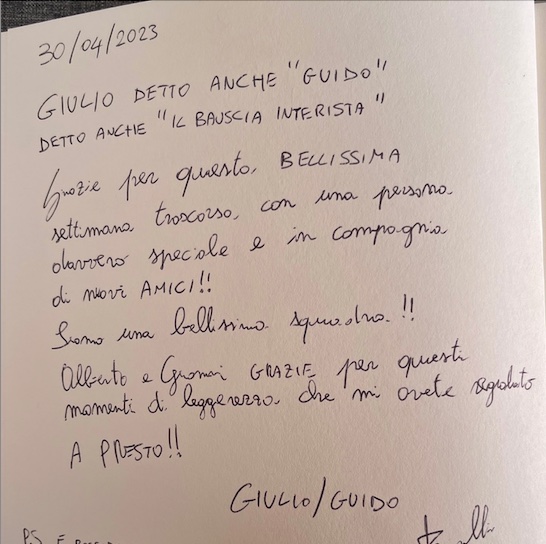 30/04/2023
GIULIO DETTO ANCHE "GUIDO"
DETTO ANCHE "IL BAUSCIA INTERISTA"
Grazie per questa BELLISSIMA
settimana trascorsa con una persona
davvero speciale e in compagnia
di nuovi AMICI!!
Siamo una bellissima squadra!!
Alberto e GRAZIE per questi
momenti di leggerezza che mi avete regalato
A PRESTO!!
GIULIO/GUIDO
PS